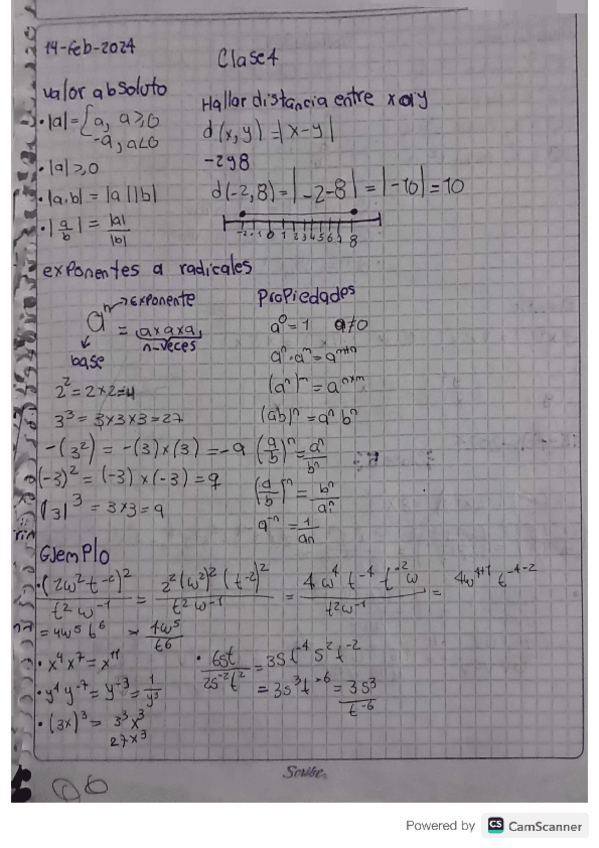 14-feb-2024
Clase 4
valor absoluto
• |a| = { a, a ≥ 0
-a, a<0
• |a| ≥ 0
• |a.b| = |a||b|
• |a/b| = |a|/|b|
Hallar distancia entre x y
d(x,y) = |x-y|
-2 y 8
d(-2,8) = |-2-8| = |-10| = 10
-2 -1 0 1 2 3 4 5 6 7 8
exponentes a radicales
→ exponente
aⁿ = a x a x a
base n-veces
2² = 2 x 2 = 4
3³ = 3 x 3 x 3 = 27
-(3²) = -(3) x (3) = -9
(-3)² = (-3) x (-3) = 9
|3|³ = 3 x 3 = 9
Propiedades
a⁰ = 1 a≠0
aⁿ · aᵐ = aᵐ⁺ⁿ
(aⁿ)ᵐ = aⁿˣᵐ
(ab)ⁿ = aⁿ bⁿ
(a/b)ⁿ = aⁿ/bⁿ
(a/b)⁻ⁿ = bⁿ/aⁿ
a⁻ⁿ = 1/aⁿ
Ejemplo
• (2w²t⁻²)²/t²w⁻¹ = 2²(w²)²(t⁻²)²/t²w⁻¹ = 4w⁴t⁻⁴t⁻²w/t²w⁻¹ = 4w⁴⁺¹ t⁻⁴⁻²
= 4w⁵ t⁶ = 4w⁵/t⁶
• x⁴x⁷ = x¹¹
• y⁴y⁻⁷ = y⁻³ = 1/y³
• (3x)³ = 3³x³
27x³
• 6st/2s⁻²t² = 3st⁻⁴s²t⁻²
= 3s³t⁻⁶ = 3s³/t⁻⁶
Scribe
Powered by CS CamScanner